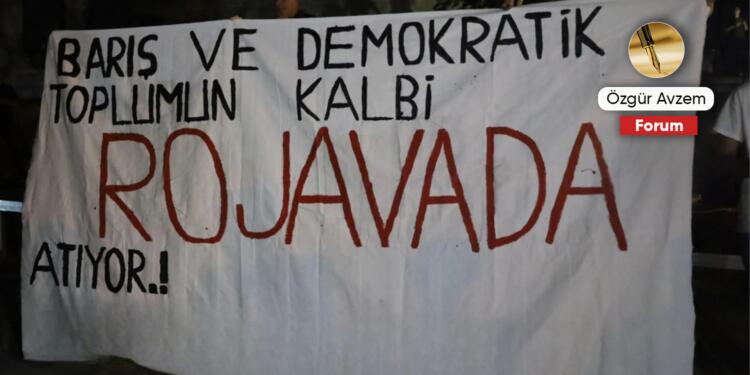 BARIŞ VE DEMOKRATİK
TOPLUMUN KALBİ
ROJAVADA
ATIYOR.!
Özgür Avzem
Forum